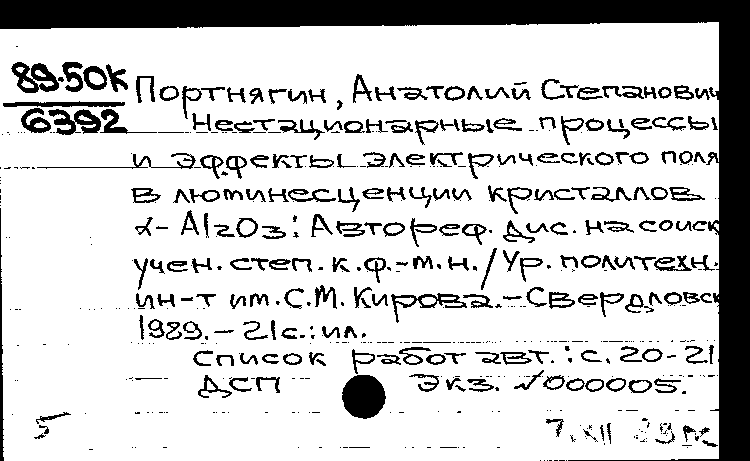 89-50к
6392
Портнягин, Анатолий Степанович
Нестационарные процессы
и эффекты электрического поля
в люминесценции кристаллов
α-Al2O3: Автореф. дис. на соиск
учен. степ. к.ф.-м.н. / Ур. политехн.
ин-т им. С.М. Кирова. - Свердловск
1989. - 21с.: ил.
Список работ авт.: с. 20-21.
ДСП Экз. №000005.
5 7.XII 89